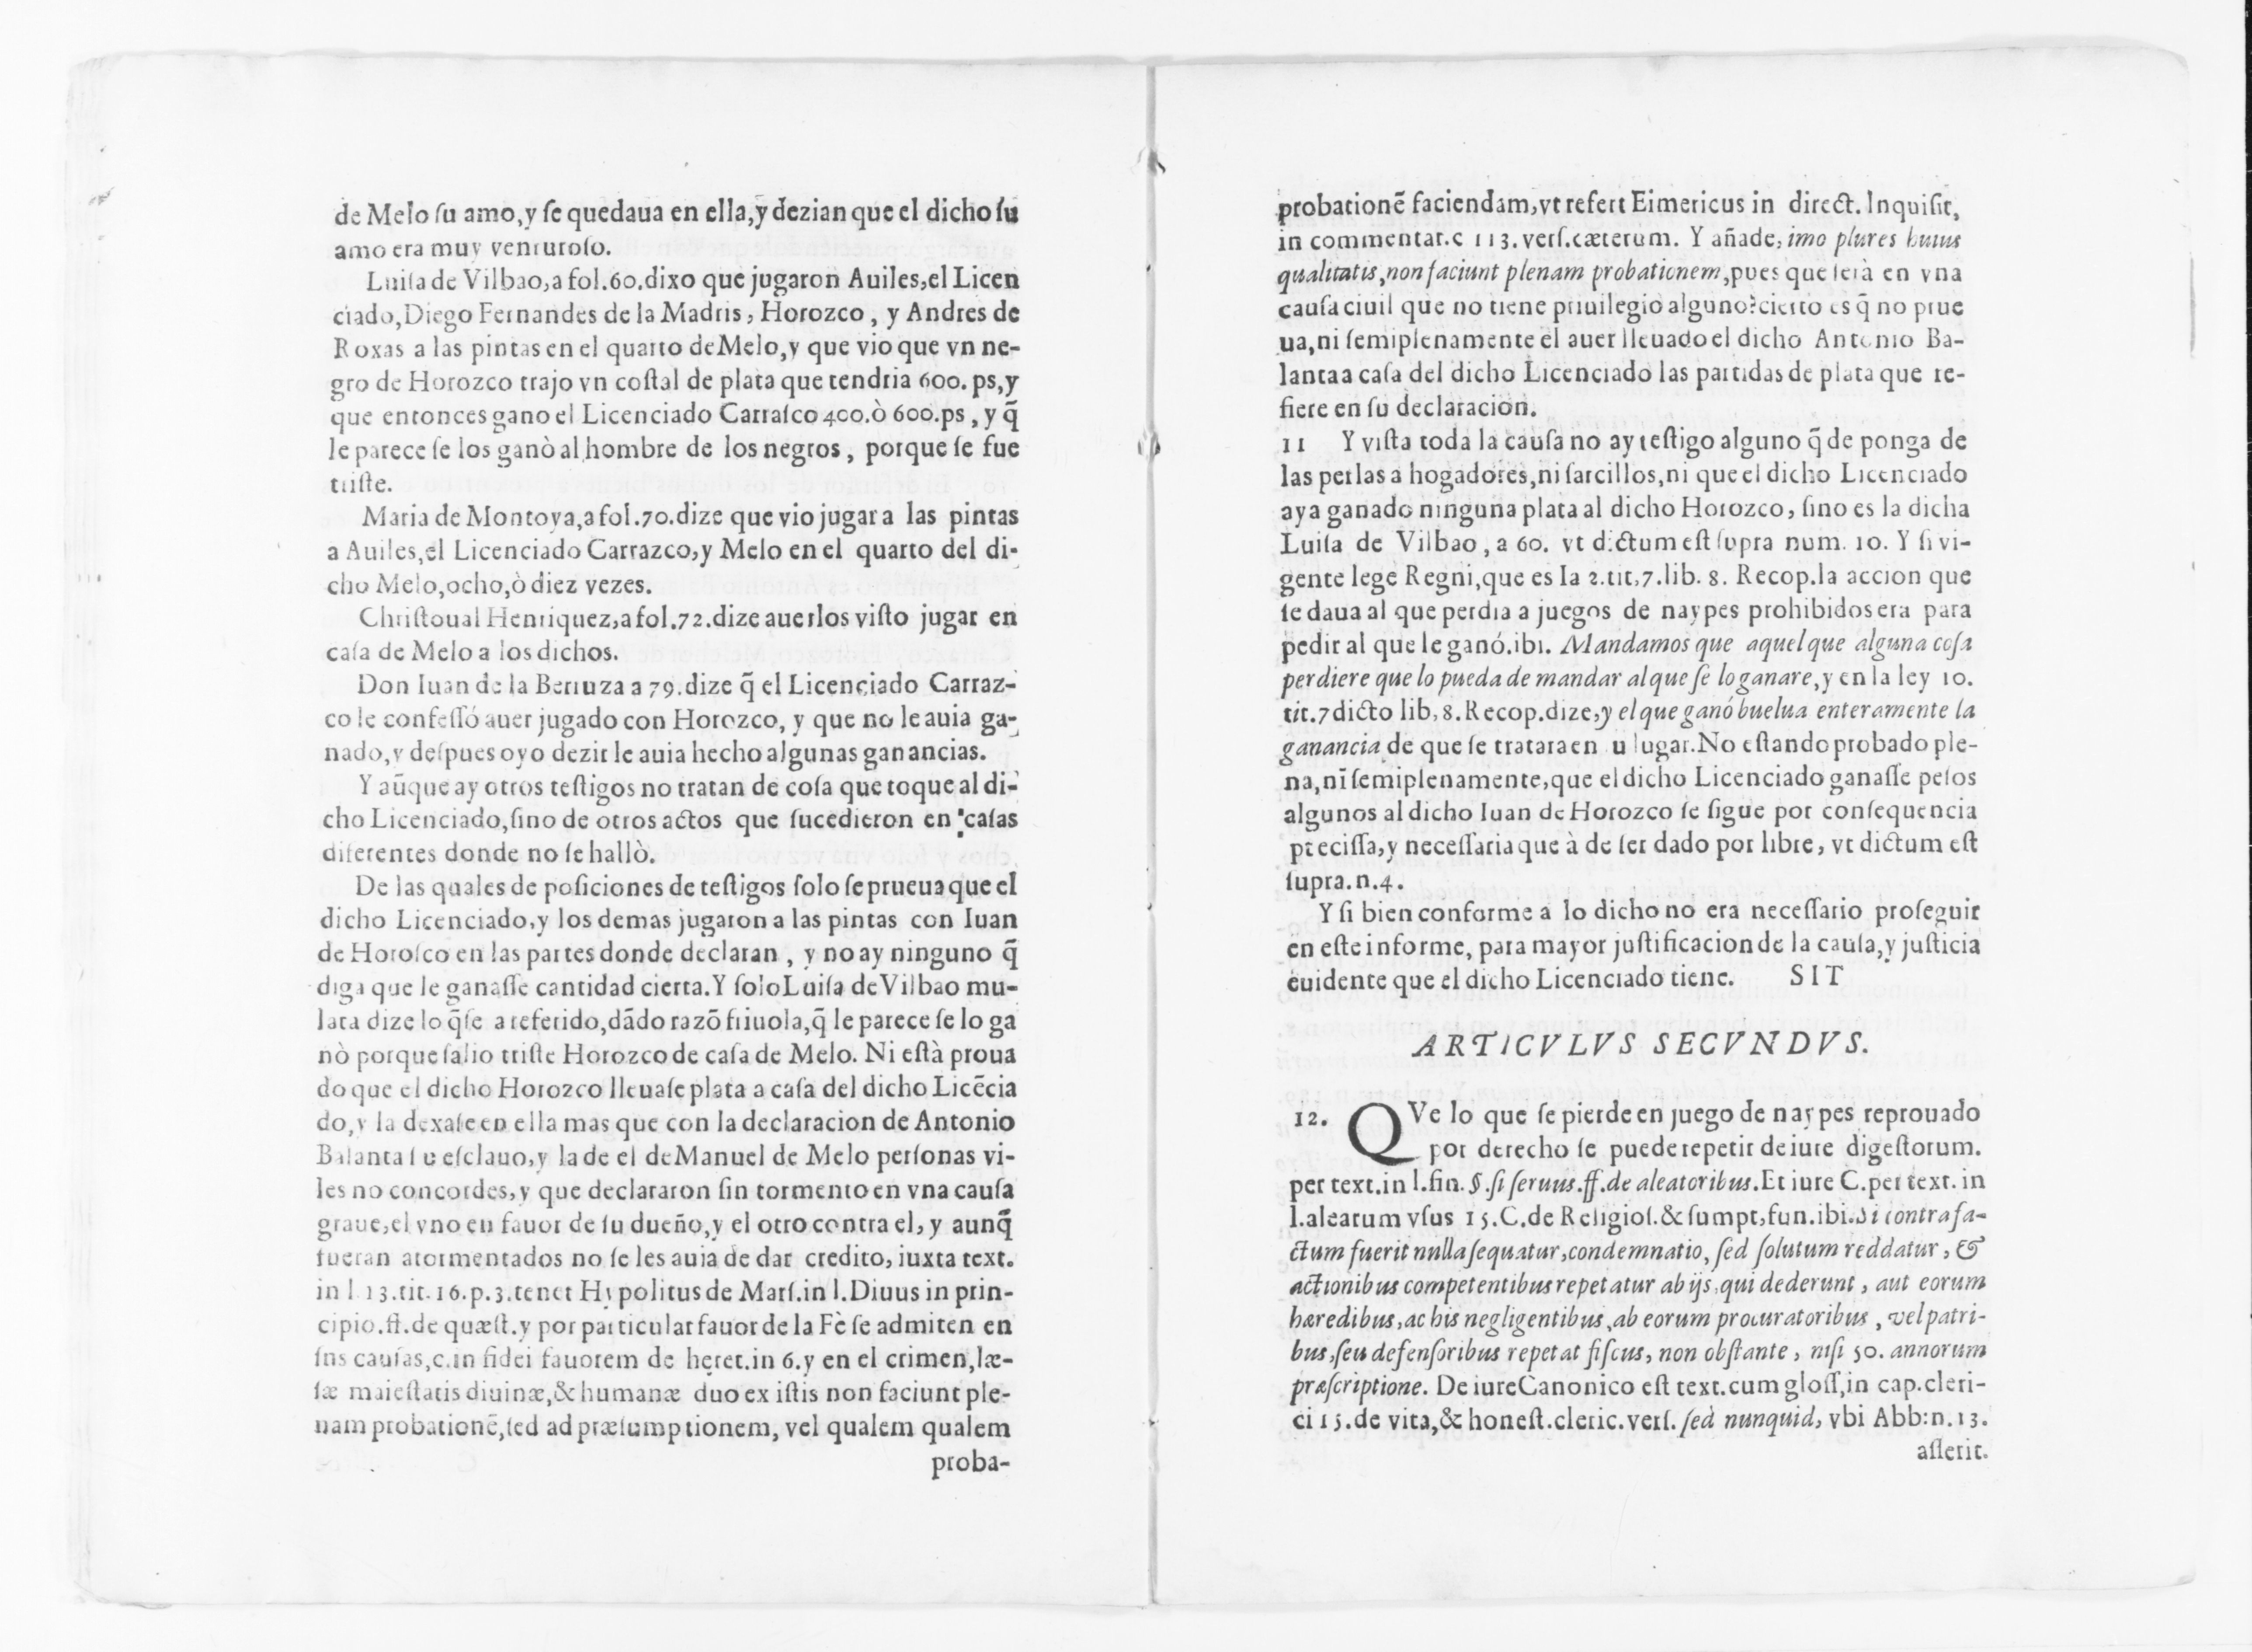 de Melo ſu amo,y ſe quedaua en ella,ȳ dezian que el dicho ſu
amo era muy venturoſo.
Luiſa de Vilbao,a fol.60.dixo que jugaron Auiles,el Licen
ciado,Diego Fernandes de la Madris, Horozco, y Andres de
Roxas a las pintas en el quarto de Melo,y que vio que vn ne-
gro de Horozco trajo vn coſtal de plata que tendria 600.ps,y
que entonces gano el Licenciado Carraſco 400.ò 600.ps, y q̄
le parece ſe los ganò al hombre de los negros, porque ſe fue
triſte.
Maria de Montoya,a fol.70.dize que vio jugar a las pintas
a Auiles,el Licenciado Carrazco,y Melo en el quarto del di-
cho Melo,ocho,ò diez vezes.
Chriſtoual Henriquez,a fol.72.dize auerlos viſto jugar en
caſa de Melo a los dichos.
Don Iuan de la Berruza a 79.dize q̄ el Licenciado Carraz-
co le confeſſó auer jugado con Horozco, y que no le auia ga-
nado,y deſpues oyo dezir le auia hecho algunas ganancias.
Y aũque ay otros teſtigos no tratan de coſa que toque al di-
cho Licenciado,ſino de otros actos que ſucedieron en caſas
diferentes donde no ſe hallò.
De las quales de poſiciones de teſtigos ſolo ſe prueua que el
dicho Licenciado,y los demas jugaron a las pintas con Iuan
de Horoſco en las partes donde declaran, y no ay ninguno q̄
diga que le ganaſſe cantidad cierta.Y ſolo Luiſa de Vilbao mu-
lata dize lo q̄ ſe a referido,dādo razō friuola,q̄ le parece ſe lo ga
nò porque ſalio triſte Horozco de caſa de Melo. Ni eſtà proua
do que el dicho Horozco lleuaſe plata a caſa del dicho Licēcia
do,y la dexaſe en ella mas que con la declaracion de Antonio
Balanta ſu eſclauo,y la de el de Manuel de Melo perſonas vi-
les no concordes,y que declararon ſin tormento en vna cauſa
graue,el vno en fauor de ſu dueño,y el otro contra el, y aunq̄
fueran atormentados no ſe les auia de dar credito, iuxta text.
in l 13.tit.16.p.3.tenet Hypolitus de Marſ.in l.Diuus in prin-
cipio.ff.de quæſt.y por particular fauor de la Fè ſe admiten en
ſus cauſas,c.in fidei fauorem de heret.in 6.y en el crimen,læ-
ſæ maieſtatis diuinæ,& humanæ duo ex iſtis non faciunt ple-
nam probationē,ſed ad præſumptionem, vel qualem qualem
proba-
probationē faciendam,vt refert Eimericus in direct. Inquiſit,
in commentar.c 113.verſ.cæterum. Y añade, imo plures huius
qualitatis,non faciunt plenam probationem,pues que ſerà en vna
cauſa ciuil que no tiene priuilegio alguno?cierto es q̄ no prue
ua,ni ſemiplenamente el auer lleuado el dicho Antonio Ba-
lanta a caſa del dicho Licenciado las partidas de plata que re-
fiere en ſu declaracion.
11 Y viſta toda la cauſa no ay teſtigo alguno q̄ de ponga de
las perlas a hogadores,ni ſarcillos,ni que el dicho Licenciado
aya ganado ninguna plata al dicho Horozco, ſino es la dicha
Luiſa de Vilbao, a 60. vt dictum eſt ſupra num. 10. Y ſi vi-
gente lege Regni,que es la 2.tit,7.lib. 8. Recop.la accion que
ſe daua al que perdia a juegos de naypes prohibidos era para
pedir al que le ganó.ibi. Mandamos que aquel que alguna coſa
perdiere que lo pueda de mandar al que ſe lo ganare,y en la ley 10.
tit.7 dicto lib, 8.Recop.dize,y el que ganó buelua enteramente la
ganancia de que ſe tratara en u lugar.No eſtando probado ple-
na,nī ſemiplenamente,que el dicho Licenciado ganaſſe peſos
algunos al dicho Iuan de Horozco ſe ſigue por conſequencia
preciſſa,y neceſſaria que à de ſer dado por libre, vt dictum eſt
ſupra.n.4.
Y ſi bien conforme a lo dicho no era neceſſario proſeguir
en eſte informe, para mayor juſtificacion de la cauſa,y juſticia
euidente que el dicho Licenciado tiene. SIT
ARTICVLVS SECVNDVS.
12. QVe lo que ſe pierde en juego de naypes reprouado
por derecho ſe puede repetir de iure digeſtorum.
per text.in l.fin.§.ſi ſeruus.ff.de aleatoribus.Et iure C.per text. in
l.alearum vſus 15.C.de Religioſ.& ſumpt,fun.ibi.Si contra fa-
ctum fuerit nulla ſequatur,condemnatio, ſed ſolutum reddatur, &
actionibus competentibus repetatur ab ijs,qui dederunt, aut eorum
hæredibus,ac his negligentibus,ab eorum procuratoribus, vel patri-
bus,ſeu defenſoribus repetat fiſcus, non obſtante, niſi 50. annorum
præſcriptione. De iure Canonico eſt text.cum gloſſ,in cap.cleri-
ci 15.de vita,& honeſt.cleric.verſ. ſed nunquid, vbi Abb:n.13.
aſſerit.